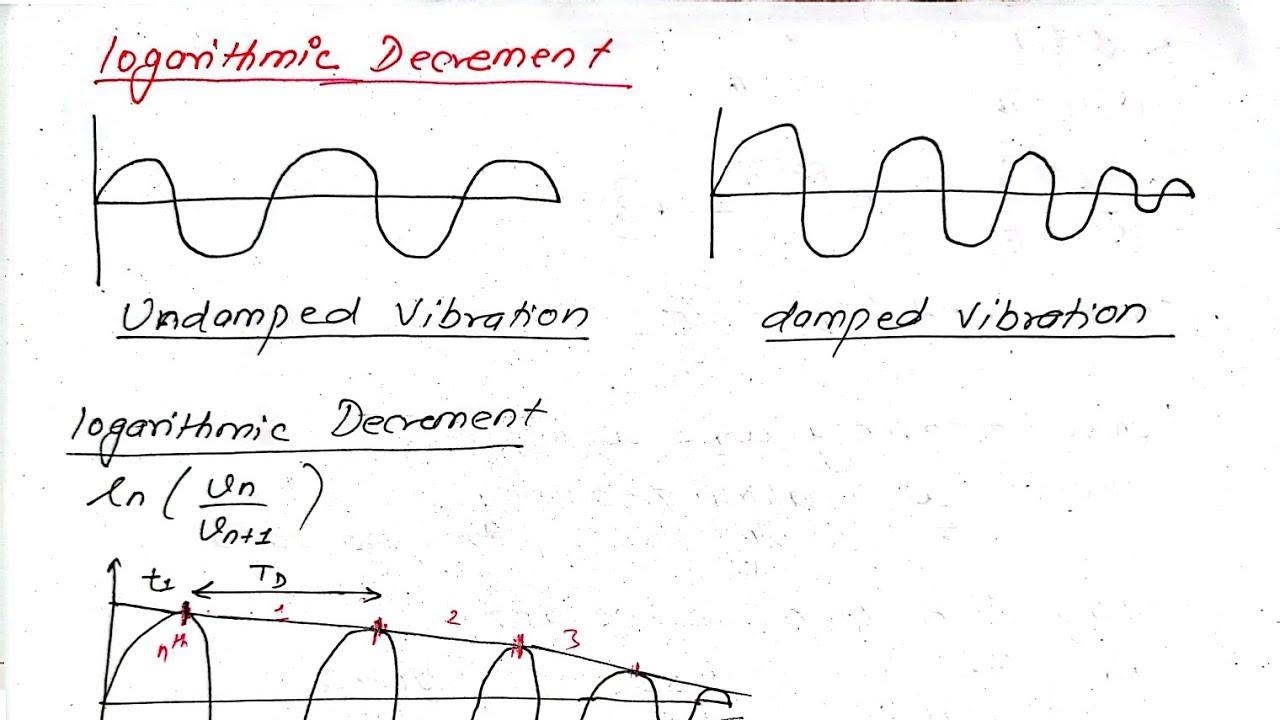 logarithmic Decrement
Undamped Vibration
damped Vibration
logarithmic Decrement
ln (vn/vn+1)
t1
TD
1
2
3
nth